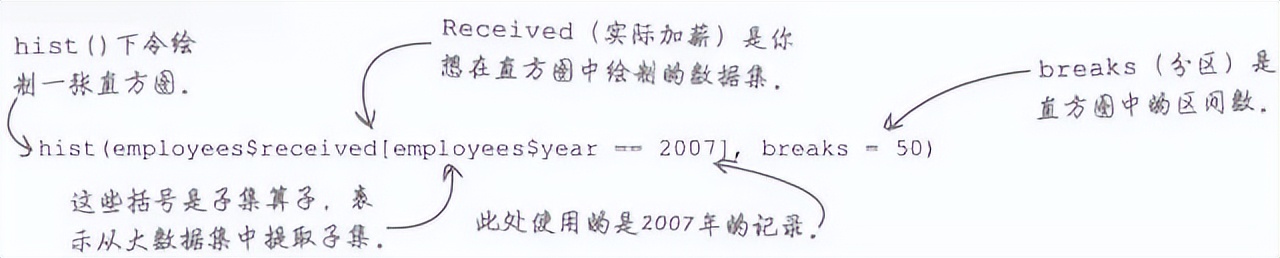 hist()下令绘
制一张直方图.
Received（实际加薪）是你
想在直方图中绘制的数据集.
breaks（分区）是
直方图中的区间数.
hist(employees$received[employees$year == 2007], breaks = 50)
这些括号是子集算子，表
示从大数据集中提取子集.
此处使用的是2007年的记录.